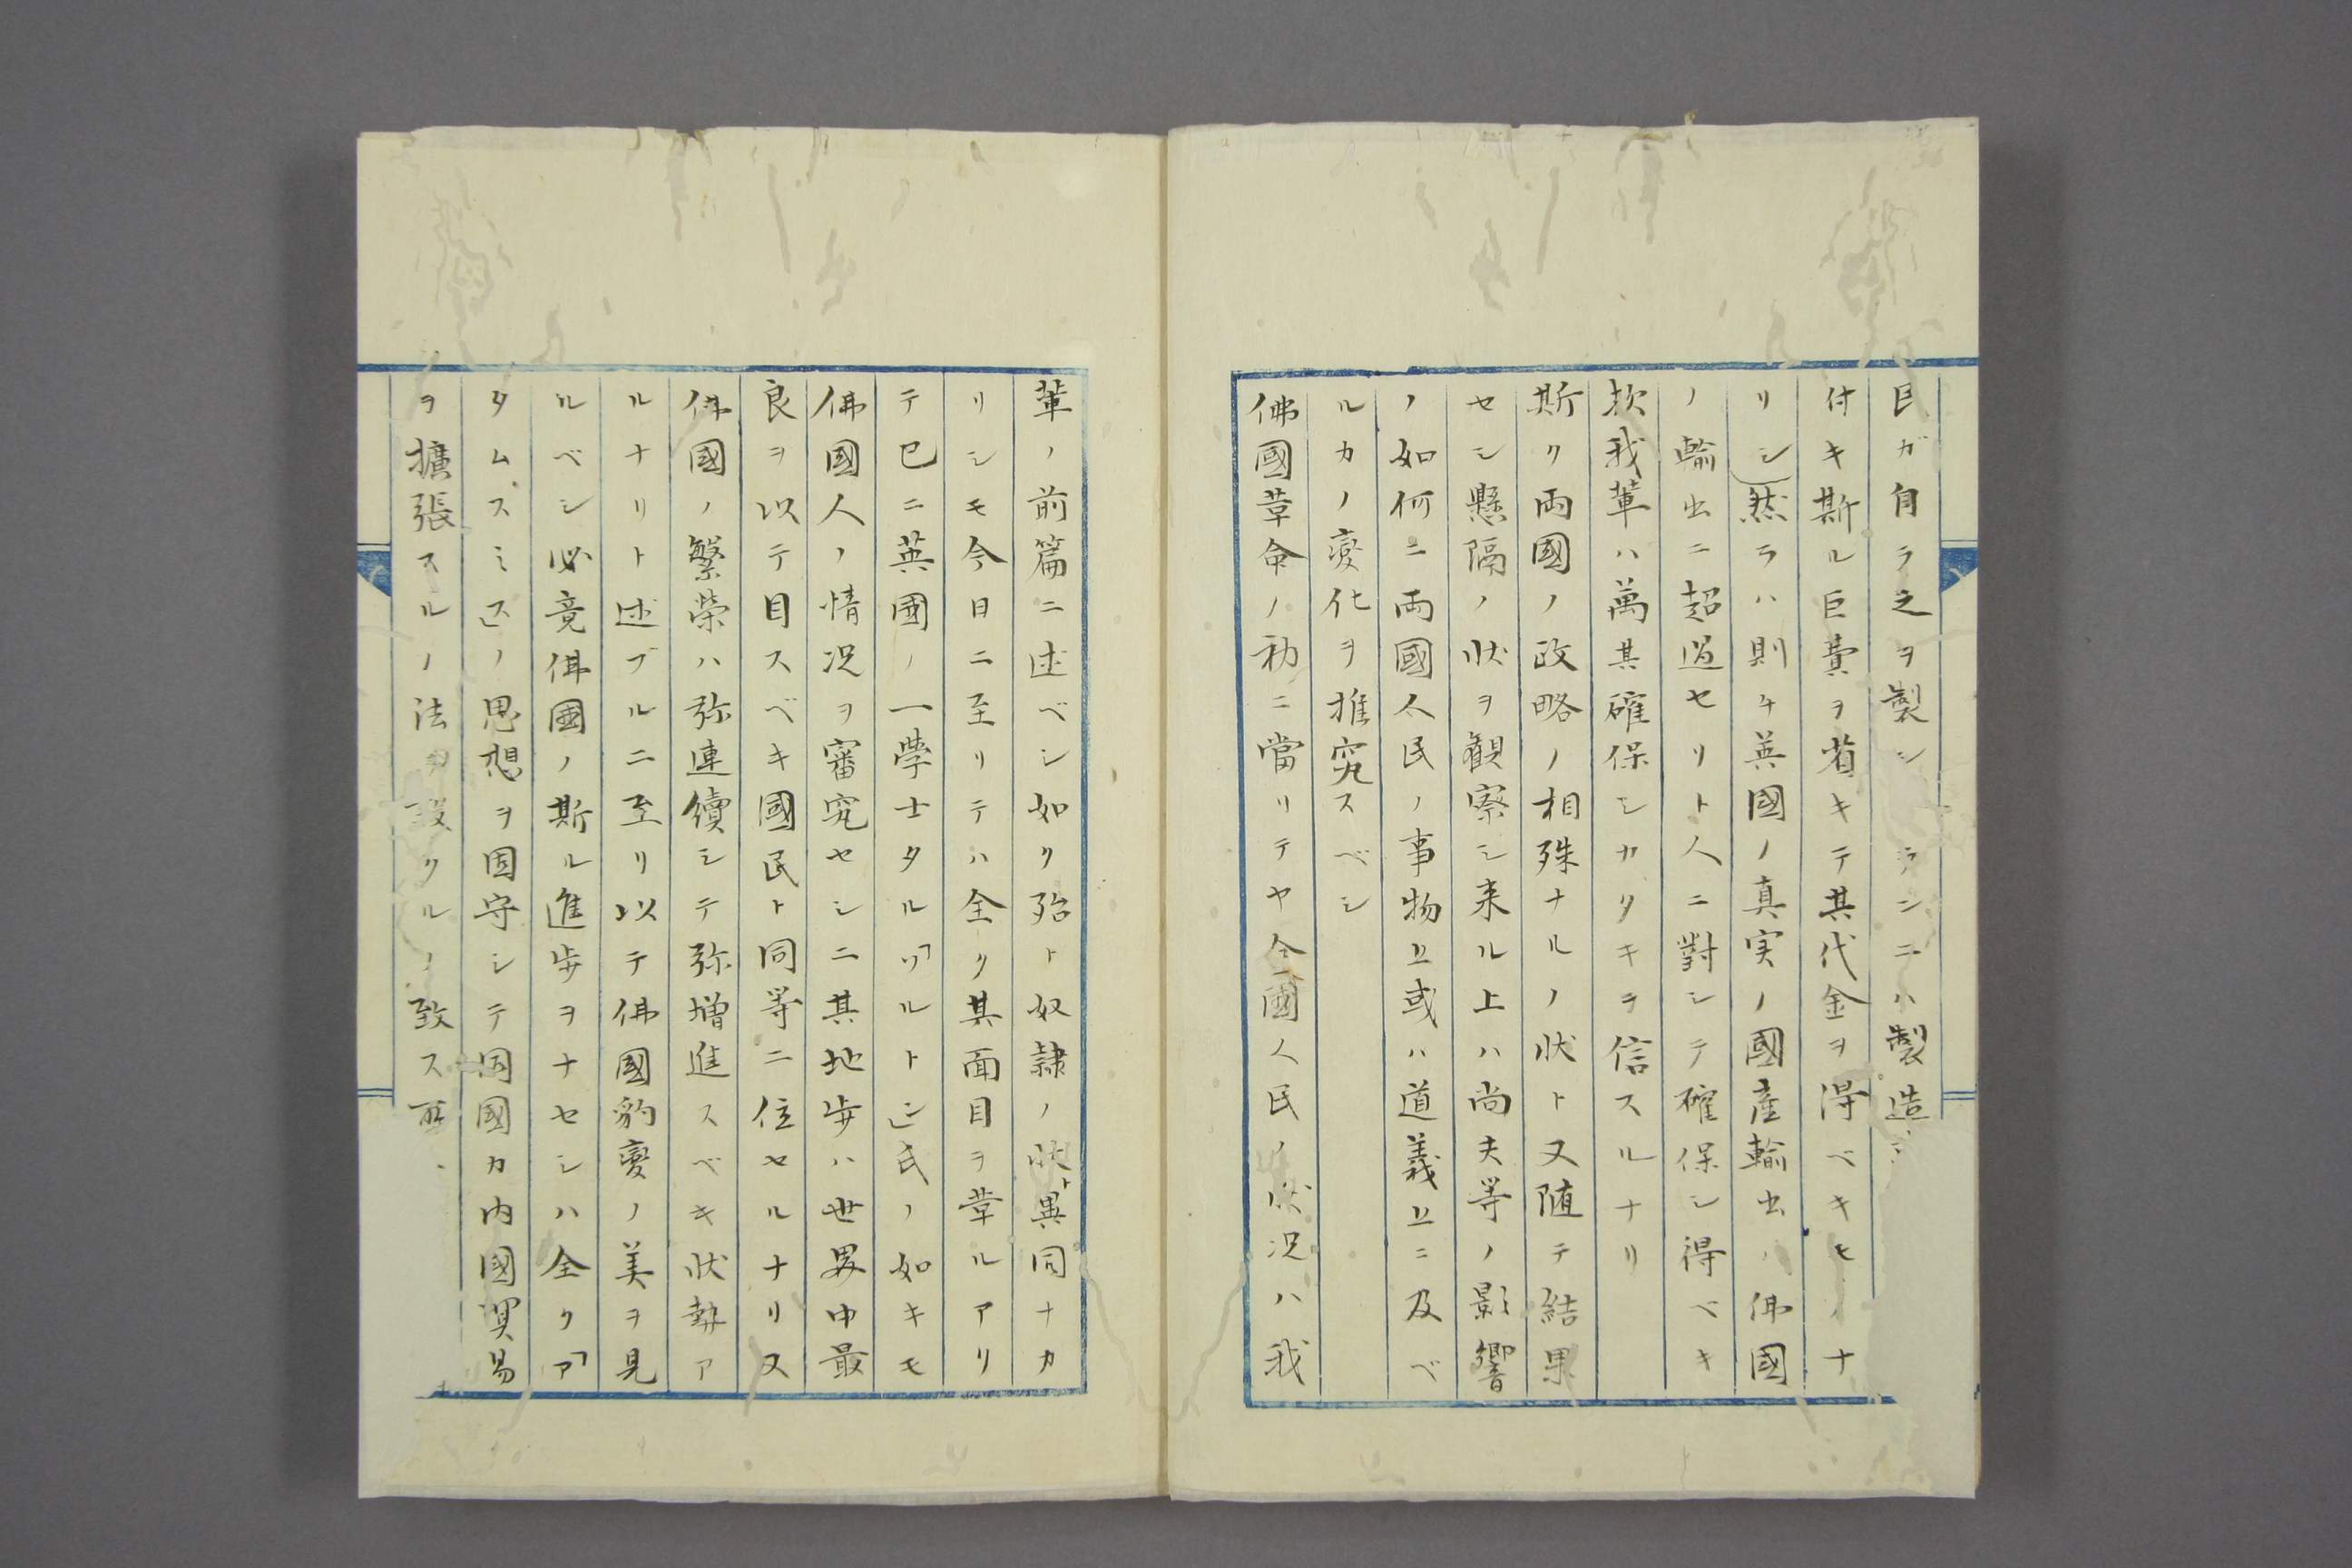 民ガ自ラ之ヲ製シ ランニハ製造
付キ斯ル巨費ヲ省キテ其代金ヲ得ベキモノナ
リシ然ラハ則チ英國ノ真実ノ國産輸出ハ佛國
ノ輸出ニ超過セリト人ニ對シテ確保シ得ベキ
欤我輩ハ萬其確保シカタキヲ信スルナリ
斯ク両國ノ政略ノ相殊ナルノ状ト又随テ結果
セシ懸隔ノ状ヲ観察シ来ル上ハ尚夫等ノ影響
ノ如何ニ両國人民ノ事物上或ハ道義上ニ及ベ
ルカノ変化ヲ推究スベシ
佛國革命ノ初ニ當リテヤ全國人民ノ状况ハ我
輩ノ前篇ニ述ベシ如ク殆ト奴隷ノ状ト異同ナカ
リシモ今日ニ至リテハ全ク其面目ヲ革ルアリ
テ已ニ英國ノ一學士タル「ソルトン」氏ノ如キモ
佛國人ノ情况ヲ審究セシニ其地歩ハ世界中最
良ヲ以テ目スベキ國民ト同等ニ位セルナリ又
佛國ノ繁榮ハ弥連續シテ弥増進スベキ状勢ア
ルナリト述ブルニ至リ以テ佛國豹変ノ美ヲ見
ルベシ必竟佛國ノ斯ル進歩ヲナセシハ全ク「ア
タムスミス」ノ思想ヲ固守シテ同國カ内國貿易
ヲ擴張スルノ法ヲ設クルノ致ス所